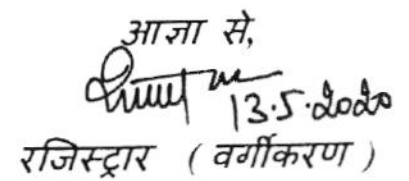 आज्ञा से,
13.5.2020
रजिस्ट्रार ( वर्गीकरण )